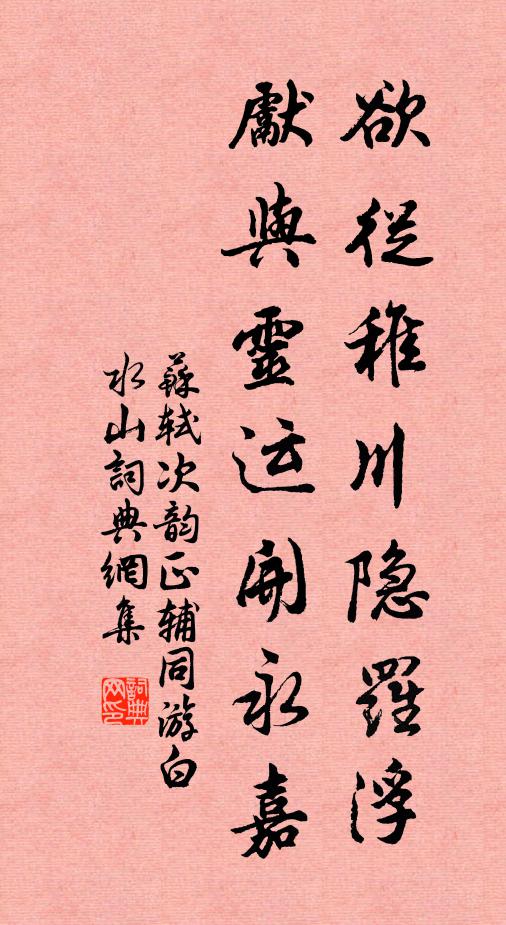 欲從稚川隐羅浮
獻與靈运開永嘉
蘇軾次韵正輔同游白
水山詞典網集
詞典网印